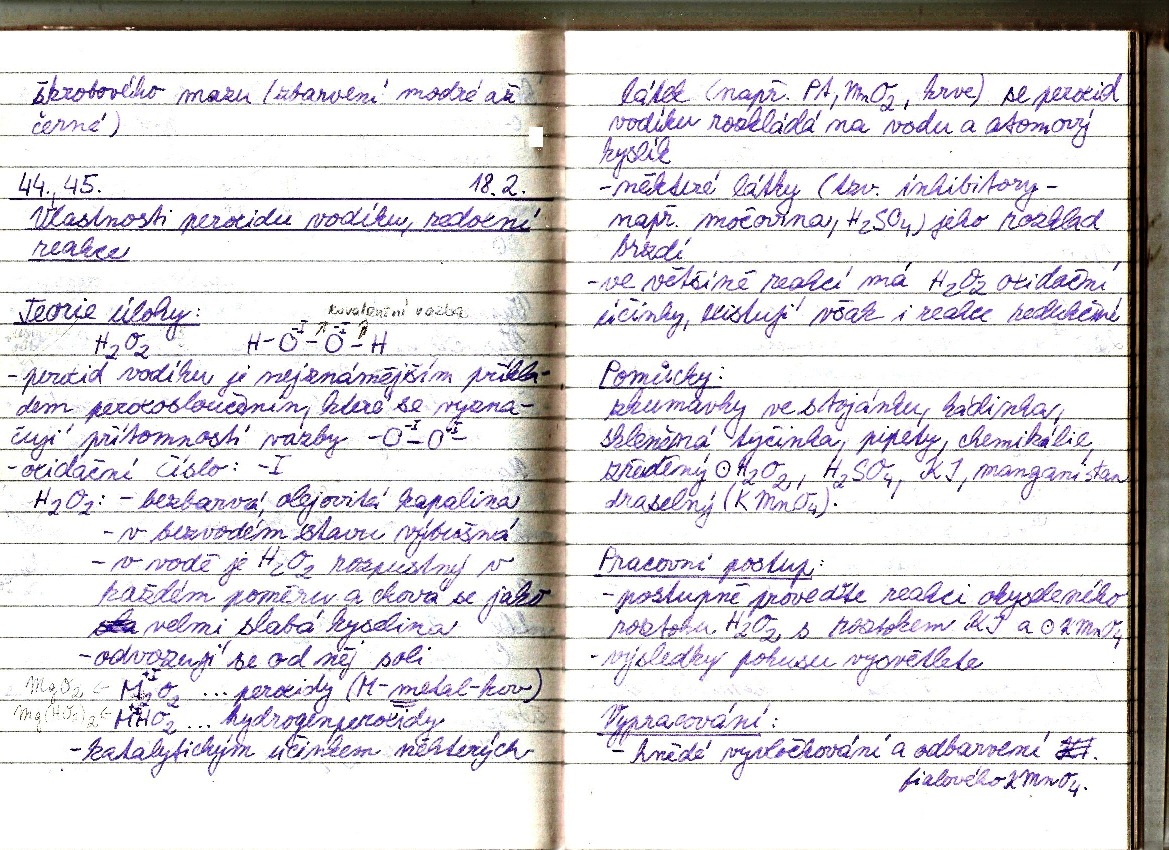 škrobového mazu (zbarvení modré až
černé)
44., 45. 18. 2.
Vlastnosti peroxidu vodíku, redoxní
reakce
Teorie úlohy:
kovalentní vazba
H₂O₂ H-O⁻ᴵ-O⁻ᴵ-H
-peroxid vodíku je nejznámějším příkla-
dem peroxosloučenin, které se vyzna-
čují přítomností vazby -O⁻ᴵ-O⁻ᴵ-
-oxidační číslo: -I
H₂O₂: - bezbarvá, olejovitá kapalina
- v bezvodém stavu výbušná
- v vodě je H₂O₂ rozpustný v
každém poměru a chová se jako
velmi slabá kyselina
-odvozují se od něj soli
MgO₂ ← M₂ᴵO₂ ... peroxidy (M-metal-kov)
Mg(HO₂)₂ ← MᴵHO₂ ... hydrogenperoxidy
-katalytickým účinkem některých
látek (např. Pt, MnO₂, krve) se peroxid
vodíku rozkládá na vodu a atomový
kyslík
-některé látky (tzv. inhibitory -
např. močovina, H₂SO₄) jeho rozklad
brzdí
-ve většině reakcí má H₂O₂ oxidační
účinky, existují však i reakce redukční
Pomůcky:
zkumavky ve stojánku, kádinka,
skleněná tyčinka, pipety, chemikálie,
zředěný ⊙ H₂O₂, H₂SO₄, KI, manganistan
draselný (KMnO₄).
Pracovní postup:
-postupně proveďte reakci okyseleného
roztoku H₂O₂ s roztokem KI a ⊙ KMnO₄
-výsledky pokusu vysvětlete
Vypracování:
- hnědé vyvločkování a odbarvení
fialového KMnO₄.